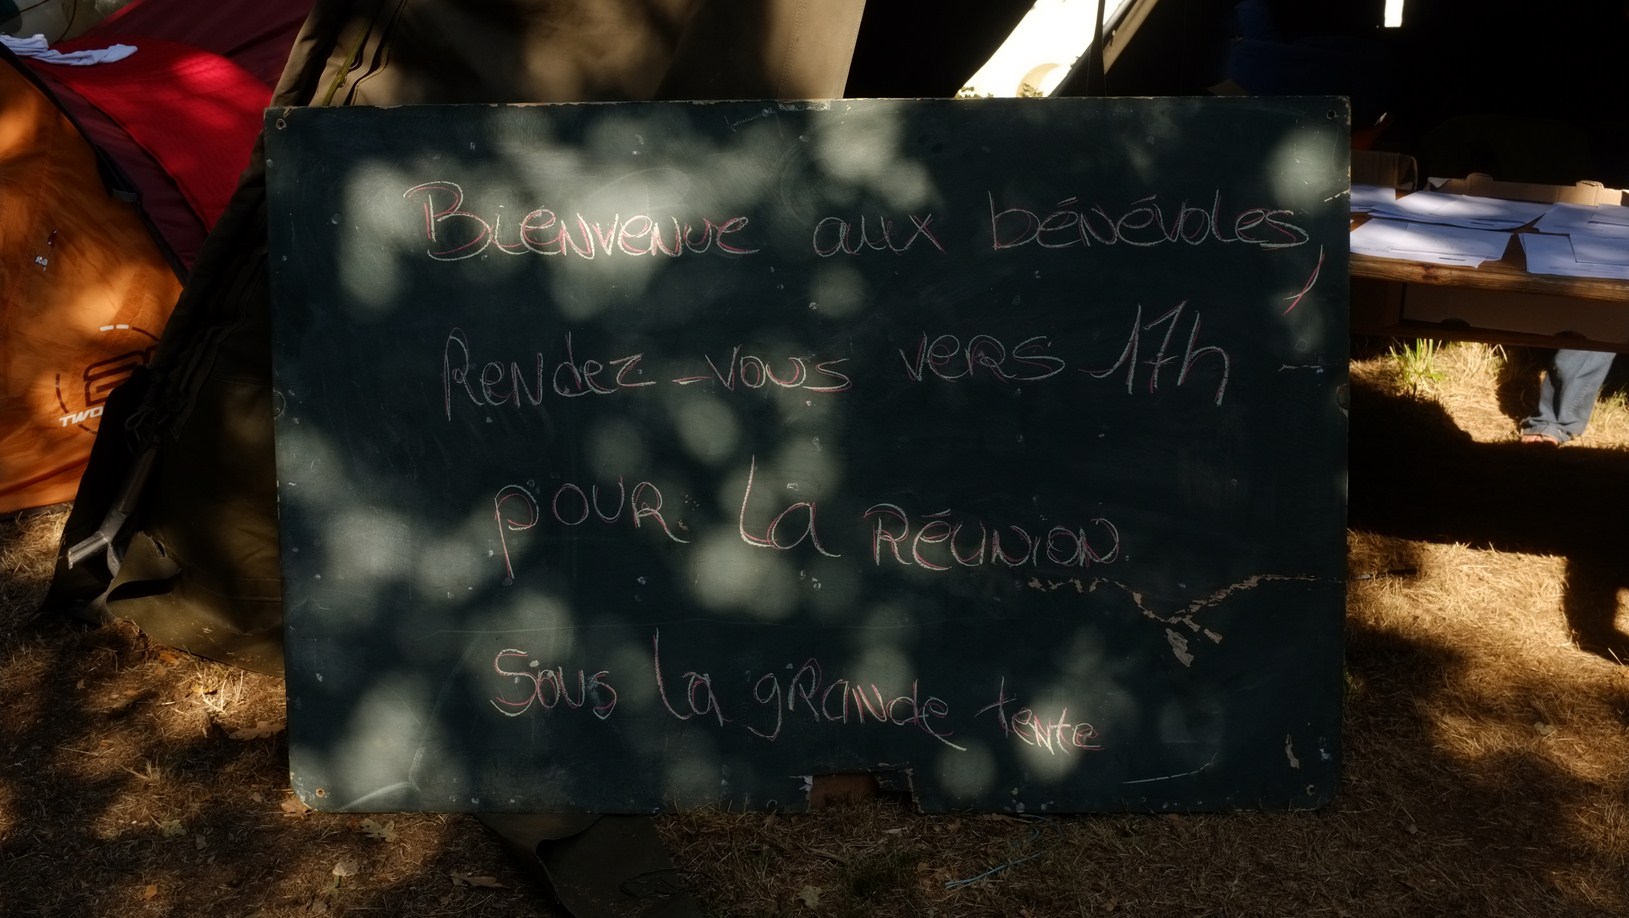 Bienvenue aux bénévoles,
Rendez-vous vers 17h
pour la réunion
Sous la grande tente